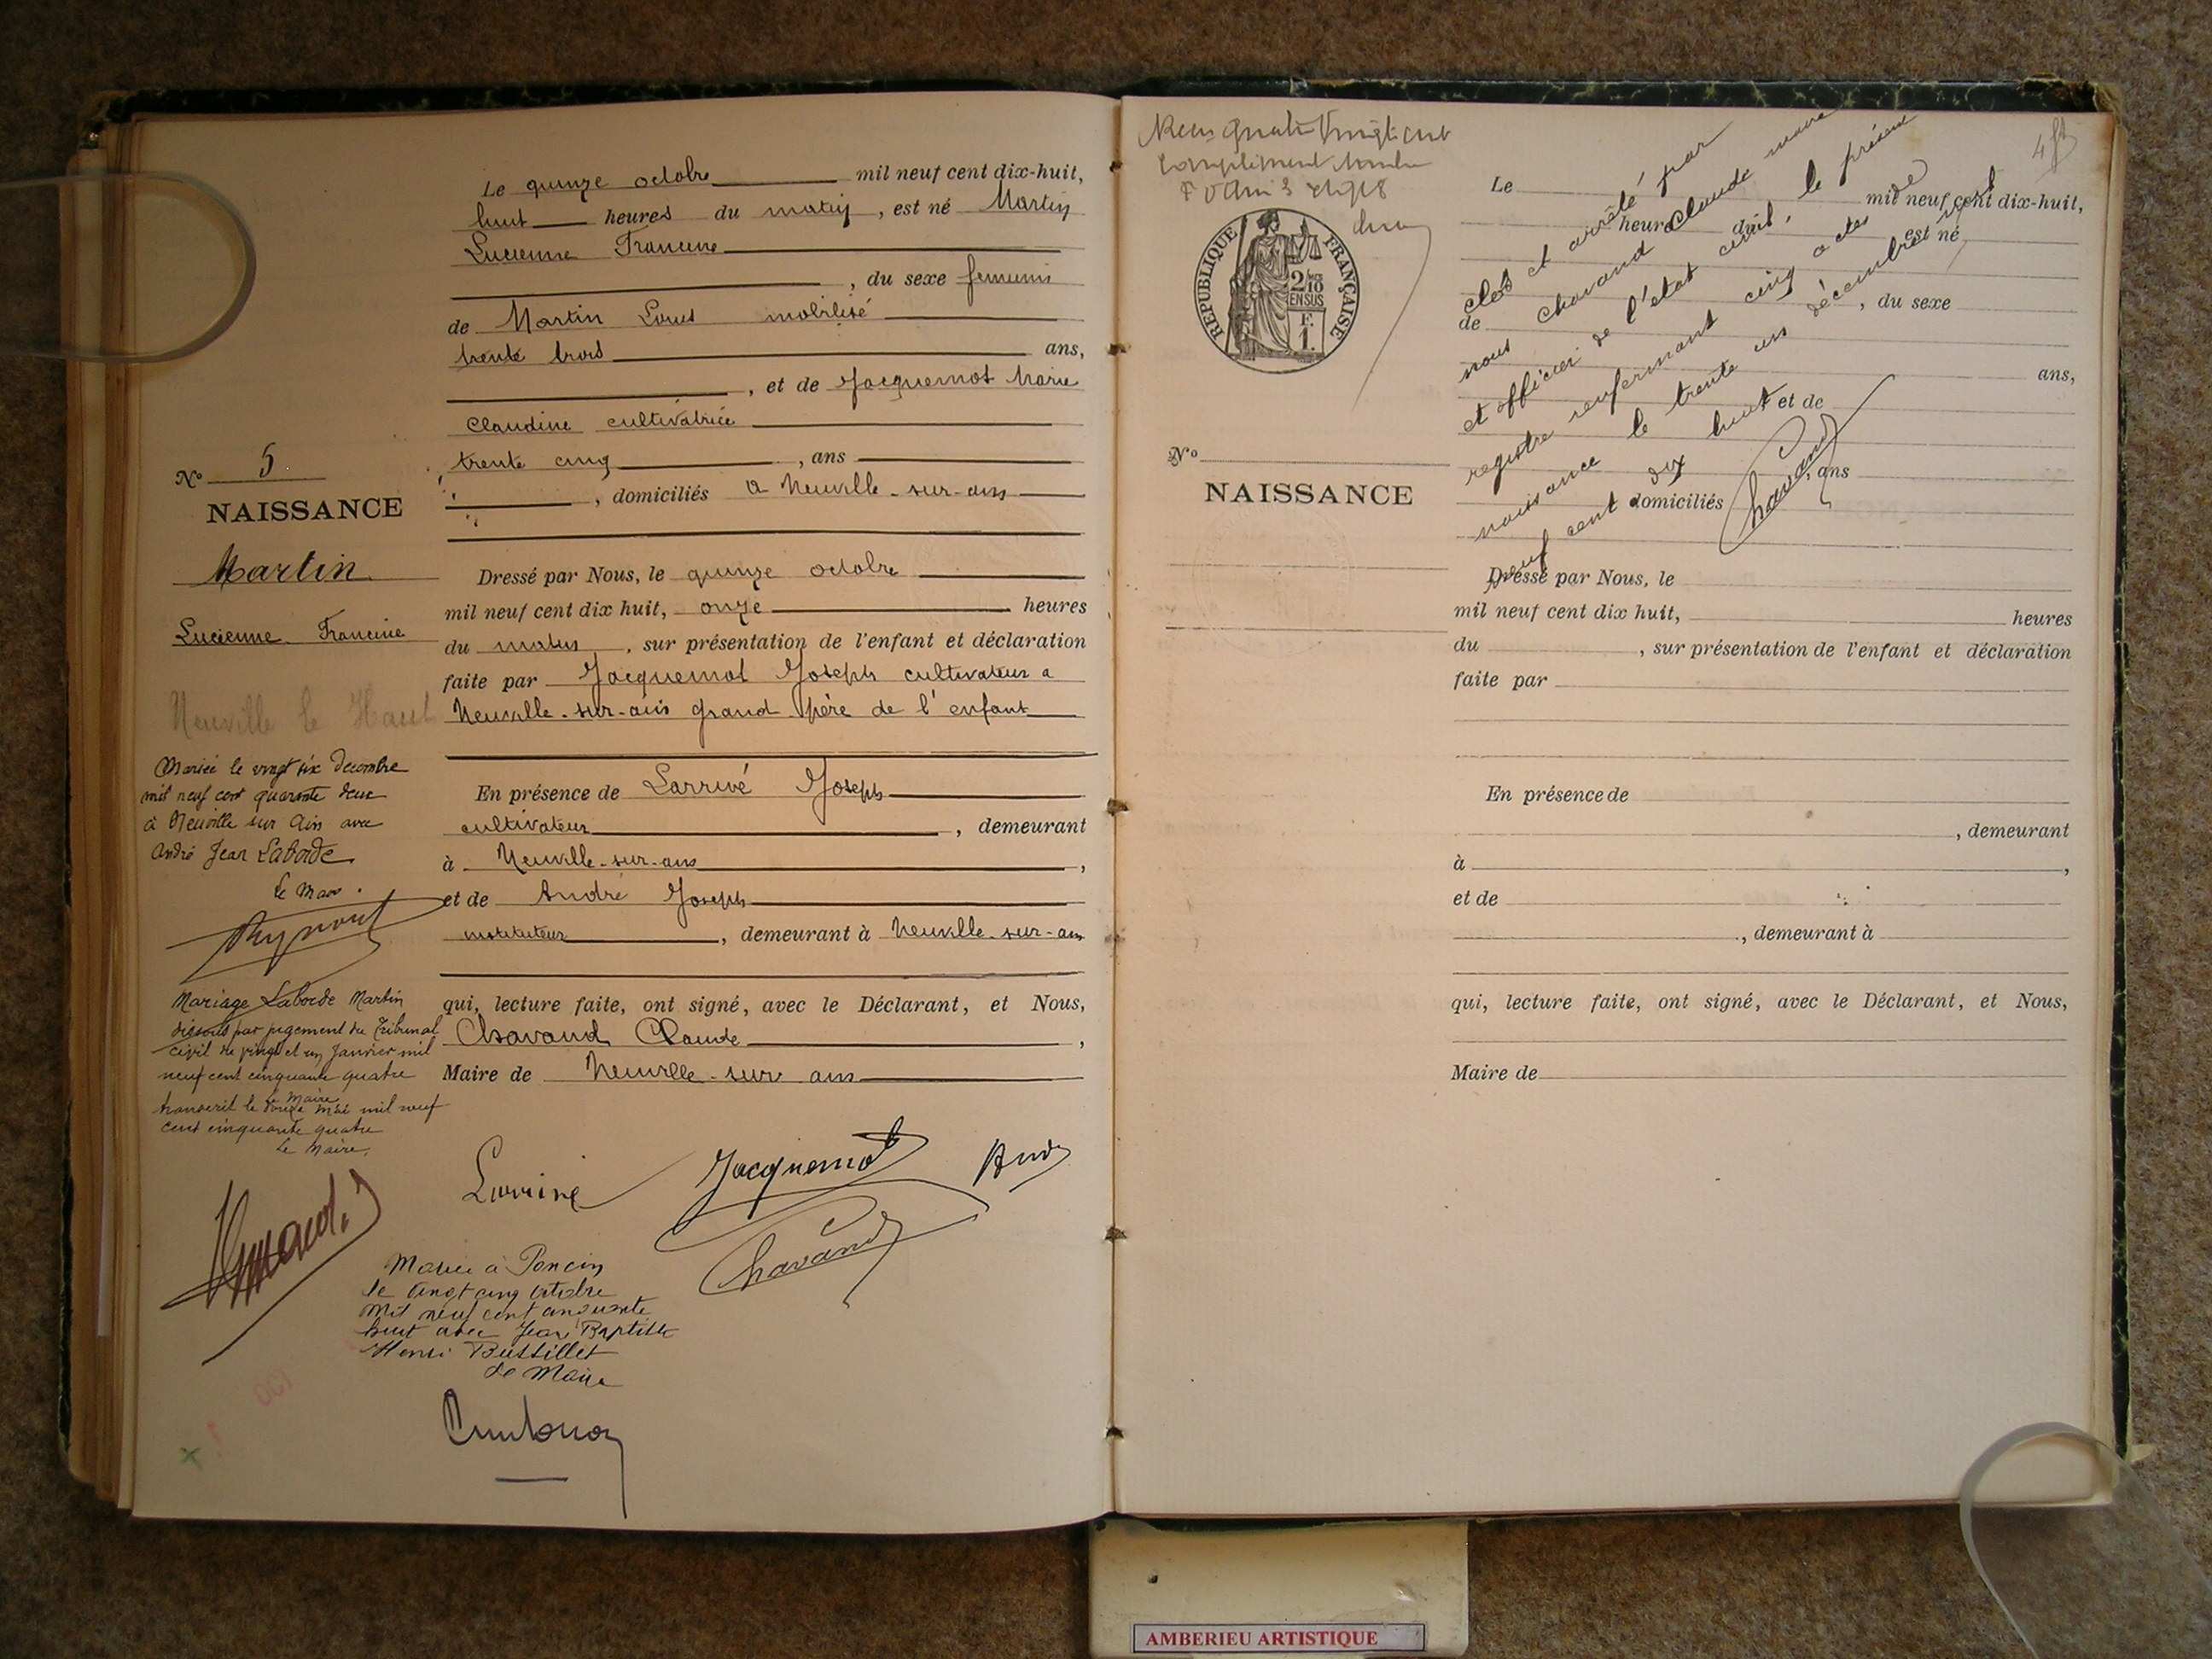 Le quinze octobre mil neuf cent dix-huit,
huit heures du matin, est né Martin
Lucienne Francine
, du sexe feminin
de Martin Louis mobilisé
trente trois ans,
, et de Jacquemot Marie
Claudine cultivatrice
trente cinq , ans
, domiciliés a Neuville-sur-ain
Nº 5
NAISSANCE
Martin
Lucienne Francine
Neuville le Haut
Dressé par Nous, le quinze octobre
mil neuf cent dix huit, onze heures
du matin, sur présentation de l'enfant et déclaration
faite par Jacquemot Joseph cultivateur a
Neuville-sur-ain grand père de l'enfant
En présence de Larrivé Joseph
cultivateur , demeurant
à Neuville-sur-ain ,
et de André Joseph
instituteur , demeurant à Neuville-sur-ain
qui, lecture faite, ont signé, avec le Déclarant, et Nous,
Chavand Claude ,
Maire de Neuville-sur ain
Mariée le vingt six Decembre
mil neuf cent quarante deux
à Neuville sur Ain avec
André Jean Laborde
Le Maire.
Mariage Laborde Martin
dissous par jugement du Tribunal
civil du vingt et un Janvier mil
neuf cent cinquante quatre
Le Maire
transcrit le douze Mai mil neuf
cent cinquante quatre
Le Maire,
Larrivé Jacquemot André
Chavand
Mariée à Poncin
le vingt cinq octobre
mil neuf cent cinquante
huit avec Jean Baptiste
Henri Bustillet
Le Maire
130
REPUBLIQUE FRANÇAISE
2/10
EN SUS
F.
1.
clos et arrêté par
nous Chavand Claude maire
et officier de l'etat civil, le présent
registre renfermant cinq actes de
naissance le trente un décembre mil
neuf cent dix huit
Chavand
Le mil neuf cent dix-huit,
heures du , est né
, du sexe
de
ans,
, et de
, ans
, domiciliés
Nº
NAISSANCE
Dressé par Nous, le
mil neuf cent dix huit, heures
du , sur présentation de l'enfant et déclaration
faite par
En présence de
, demeurant
à ,
et de
, demeurant à
qui, lecture faite, ont signé, avec le Déclarant, et Nous,
Maire de
AMBERIEU ARTISTIQUE